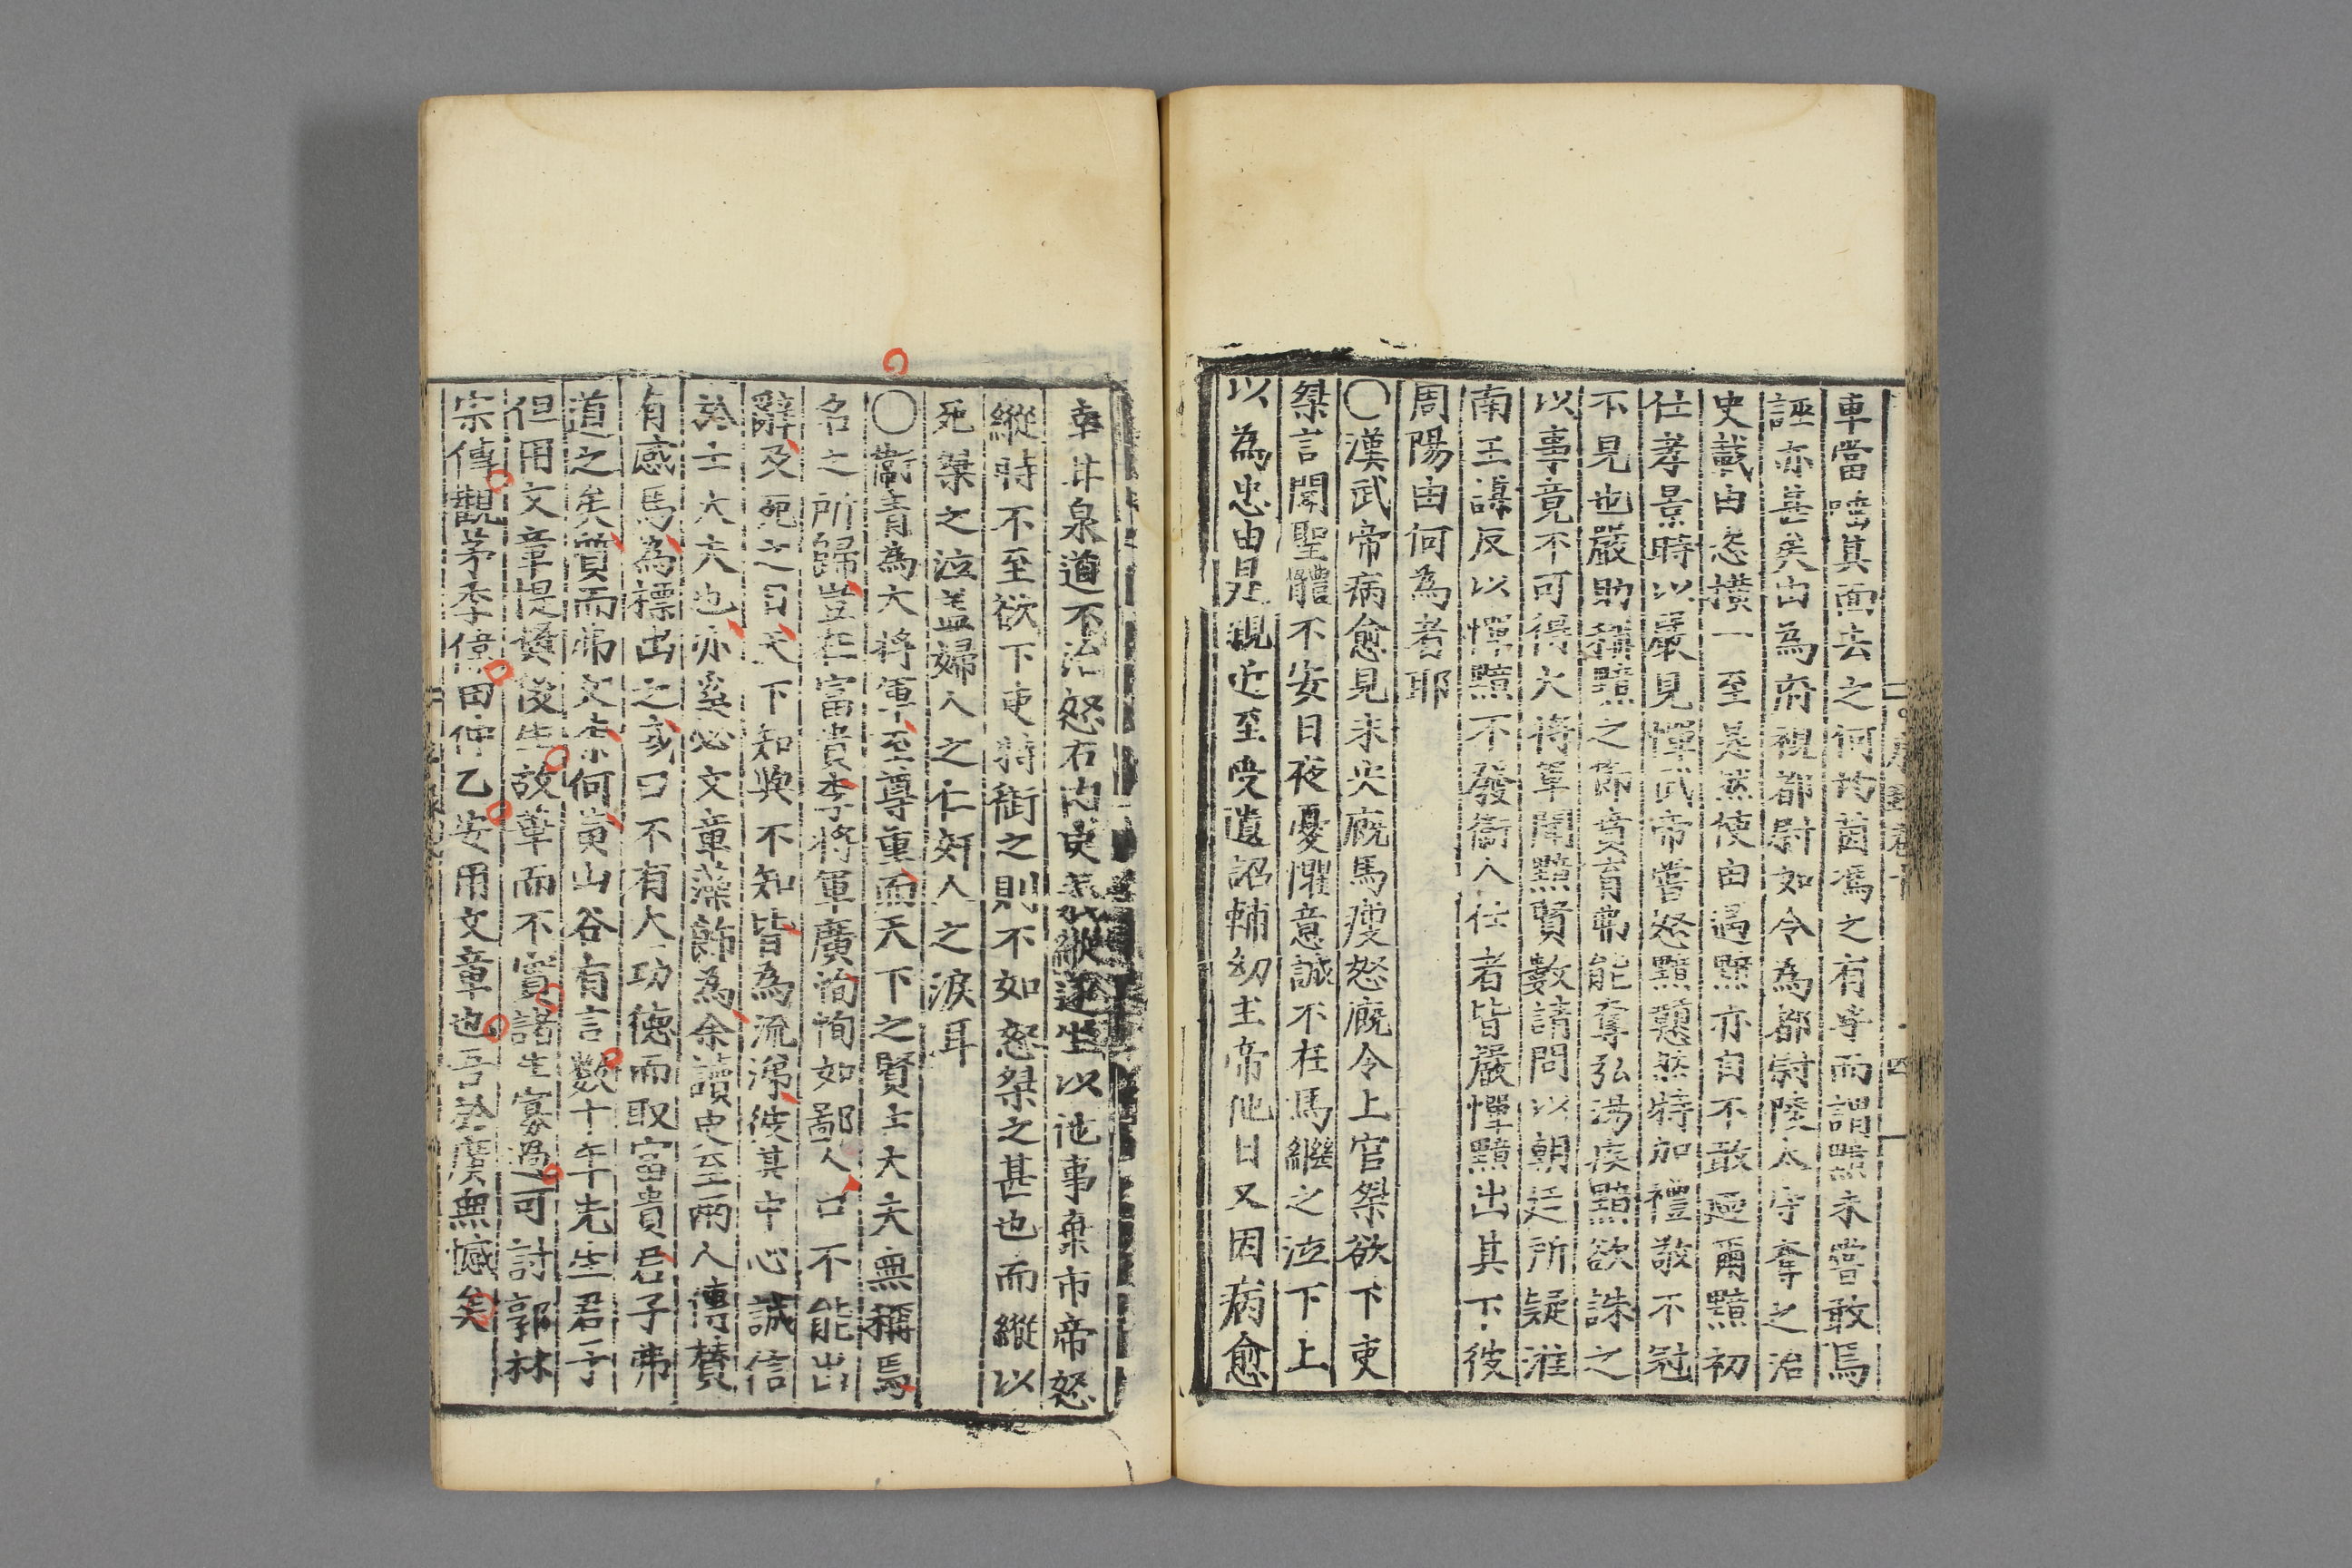 車當唾其面去之何均茵馮之有乎而謂黯未嘗敢焉
誣亦甚矣由為府視都尉如令為都尉陵太守奪之治
史載由恣橫一至是然使由遇黯亦自不敢逞爾黯初
仕孝景時以嚴見憚武帝嘗怒黯戇然特加禮敬不冠
不見也嚴助稱黯之節賁育弗能奪弘湯疾黯欲誅之
以事竟不可得大將軍聞黯賢數請問以朝廷所疑淮
南王謀反以憚黯不發衛人仕者皆嚴憚黯出其下彼
周陽由何為者耶
〇漢武帝病愈見未央廄馬瘦怒廄令上官桀欲下吏
桀言聞聖體不安日夜憂懼意誠不在馬繼之泣下上
以為忠由是親近至受遺詔輔幼主帝他日又因病愈
幸甘泉道不治怒右內史義縱遂坐以他事棄市帝怒
縱時不至欲下吏特銜之則不如怒桀之甚也而縱以
死桀之泣盖婦人之仁奸人之淚耳
〇衛青為大將軍至尊重而天下之賢士大夫無稱焉
名之所歸豈在富貴李將軍廣恂恂如鄙人口不能出
辭及死之日天下知與不知皆為流涕彼其中心誠信
於士大夫也亦奚必文章藻飾為余讀史至兩人傳贊
有感焉為標出之或曰不有大功德而取富貴君子弗
道之矣質而弗文奈何黃山谷有言数十年先生君子
但用文章提獎後生故華而不實諸生寡過可討郭林
宗傳觀茅季偉田仲乙安用文章也吾於廣無憾矣